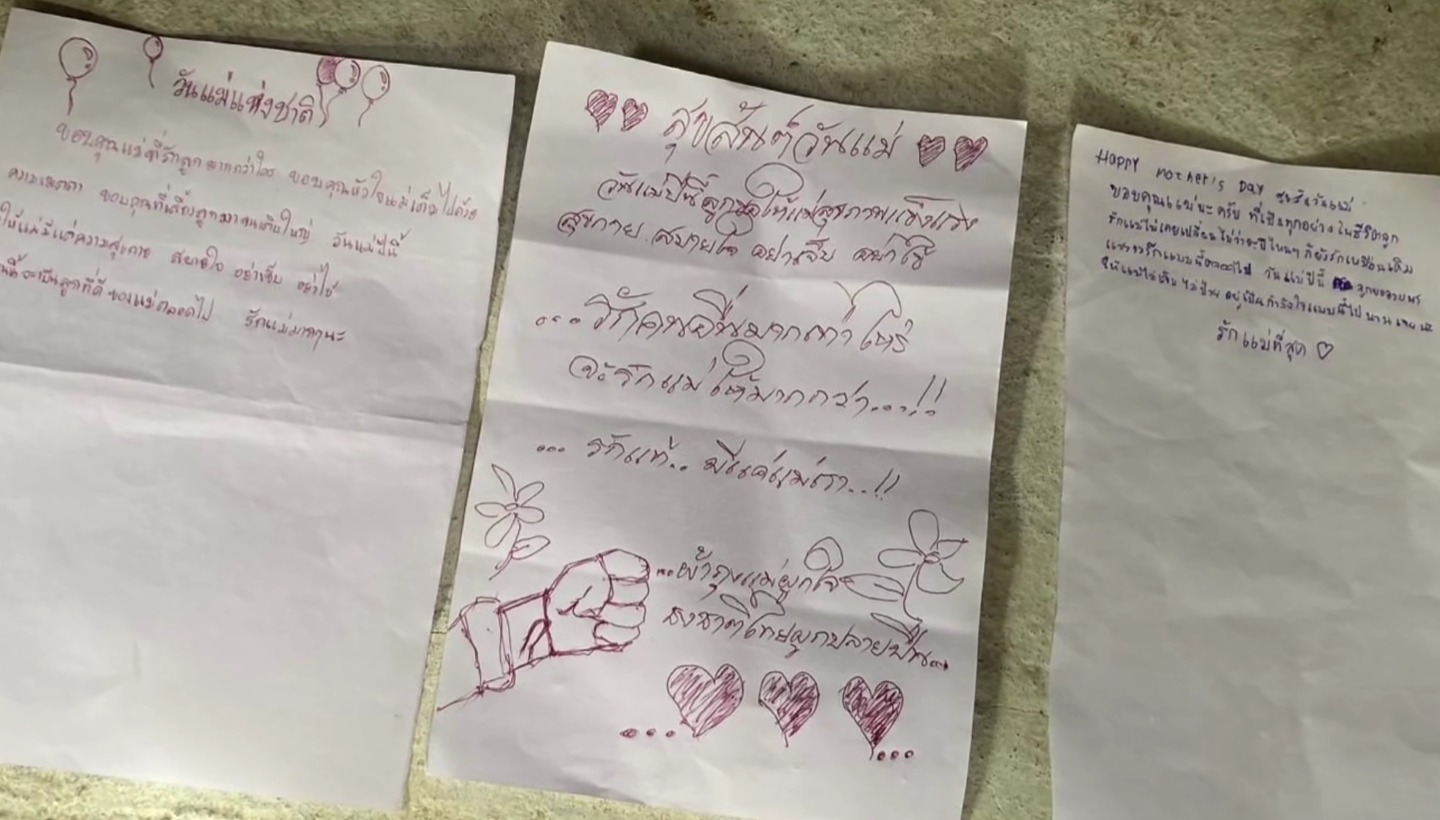 วันแม่แห่งชาติ
ขอบคุณแม่ที่รักลูกมากกว่าใคร ขอบคุณหัวใจแม่เต็มไปด้วย
ความเมตตา ขอบคุณที่เลี้ยงลูกมาจนเติบใหญ่ วันแม่ปีนี้
ให้แม่มีแต่ความสุขกาย สบายใจ อย่าเจ็บ อย่าไข้
จะเป็นลูกที่ดีของแม่ตลอดไป รักแม่มากๆนะ
สุขสันต์วันแม่
วันแม่ปีนี้ลูกขอให้แม่สุขภาพแข็งแรง
สุขกาย สบายใจ อย่าเจ็บ อย่าไข้
...รักคนอื่นมากเท่าไหร่
จะรักแม่ให้มากกว่า....!!
... รักแท้.. มีแค่แม่เรา..!!
...ผ้าถุงแม่ผูกใจ
ธงชาติไทยผูกปลายปืน...
...
...
Happy mother's Day สุขสันวันแม่
ขอบคุณแม่นะครับ ที่เป็นทุกอย่างในชีวิตลูก
รักแม่ไม่เคยเปลี่ยนไม่ว่าจะปีไหนๆ ก็ยังรักเหมือนเดิม
และจะรักแบบนี้ตลอดไป วันแม่ปีนี้ ลูกขออวยพร
ให้แม่ไม่เจ็บ ไม่ป่วย อยู่เป็นกำลังใจแบบนี้ไป นาน เลย นะ
รักแม่ที่สุด ♡